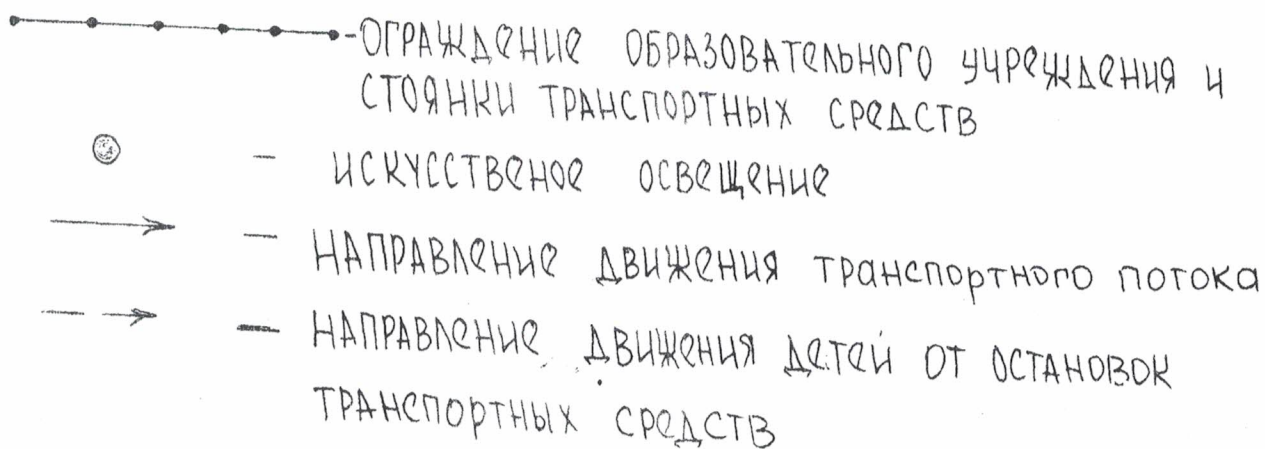 -ОГРАЖДЕНИЕ ОБРАЗОВАТЕЛЬНОГО УЧРЕЖДЕНИЯ И
СТОЯНКИ ТРАНСПОРТНЫХ СРЕДСТВ
- ИСКУССТВЕНОЕ ОСВЕЩЕНИЕ
- НАПРАВЛЕНИЕ ДВИЖЕНИЯ ТРАНСПОРТНОГО ПОТОКА
- НАПРАВЛЕНИЕ ДВИЖЕНИЯ ДЕТЕЙ ОТ ОСТАНОВОК
ТРАНСПОРТНЫХ СРЕДСТВ